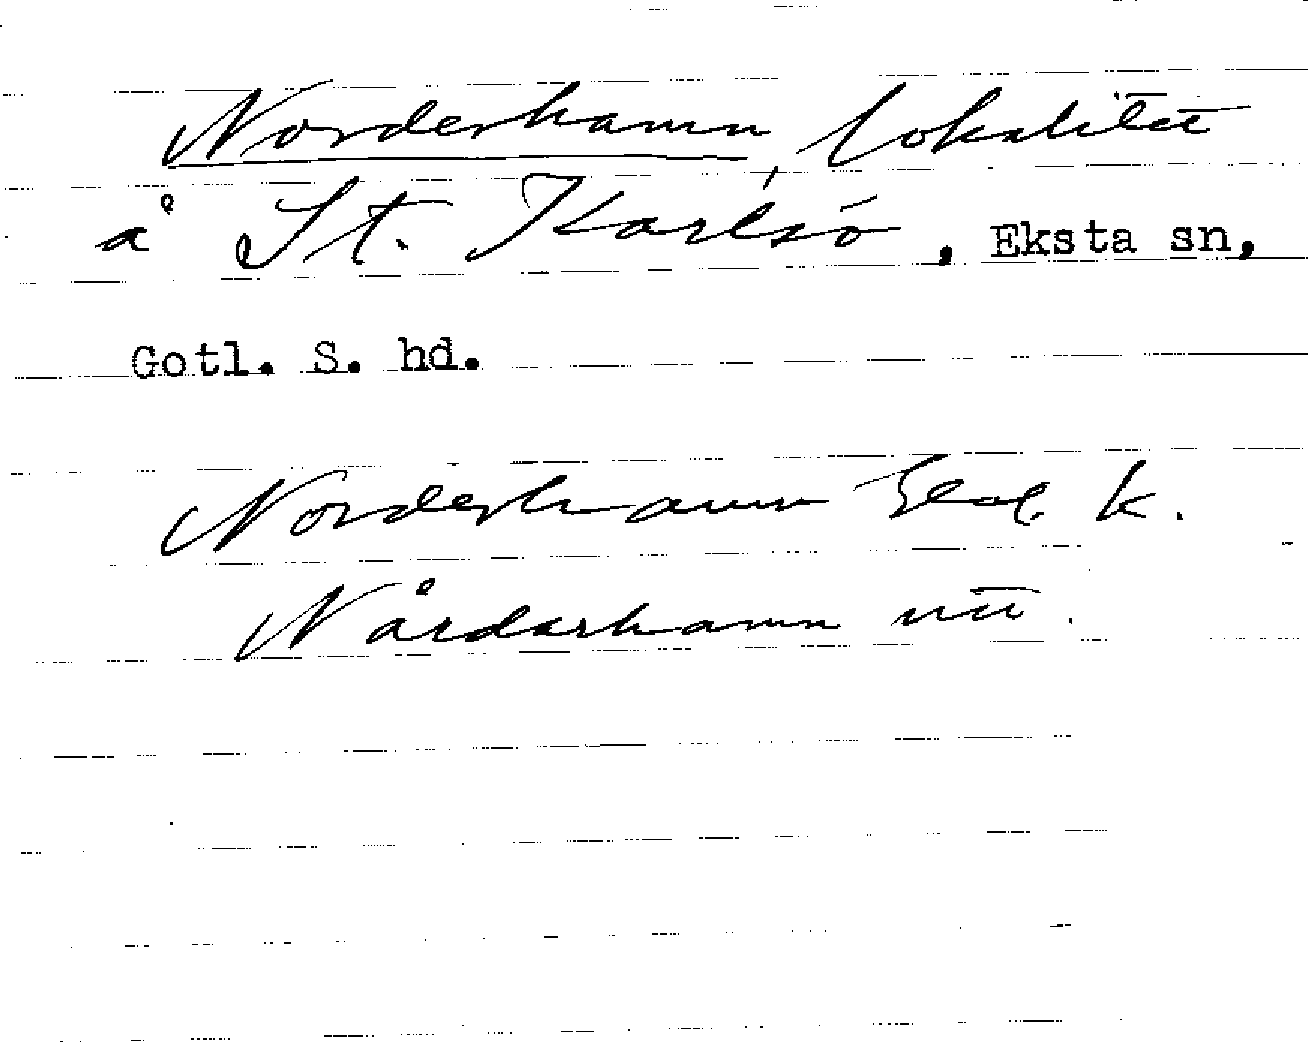 Norderhamn, lokalitet
å St. Karlsö, Eksta sn,
Gotl. S. hd.
Norderhamn Geol k.
Nårdarhamn utt.